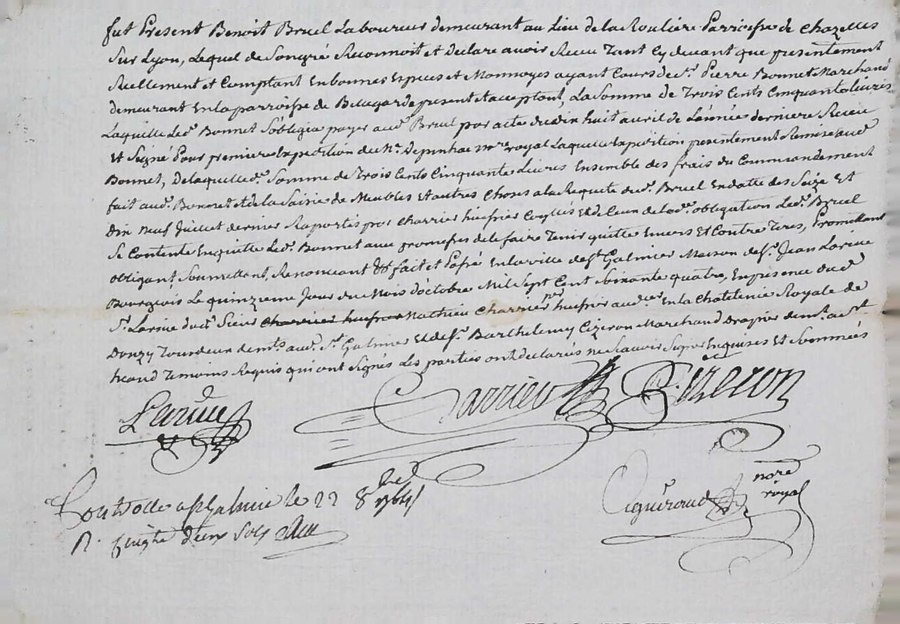 fut Present Benoit Bruel Laboureur demeurant au lieu de la Rouliere Parroisse de Chazelles
Sur Lyon, Lequel de Son gré Reconnoit et Declare avoir Receu Tant Cy devant que presentement
Reellement et Comptant En bonnes Especes et Monnoyes ayant Cours de Sr. Pierre Bonnet Marchand
demeurant En la parroisse de Bellegarde present et acceptant, La Somme de Trois Cents Cinquante Livres
Laquelle led. Bonnet S'obligea payer aud. Bruel par acte du dix huit avril de L'année derniere Receu
Et Signé Pour premiere Expedition du Me. Depinhac nore. royal Laquelle Expedition presentement Remise aud.
Bonnet, De laquelle d. Somme de Trois Cents Cinquante Livres Ensemble des frais du Commandement
fait aud. Bonnet Et de la Saisie de Meubles Et autres Choses a la Requete dud. Bruel En datte des Seize Et
Dix neuf Juillet dernier Raportés par Charrier huissier Et de Celui de lad. obligation Led. Bruel
Se Contente En quitte Led. Bonnet aux promesses de le faire Tenir quitte Envers Et Contre Tous, Promettant
obligant, Soumettant, Renonceant &. fait et Passé En la ville de St. Galmier Maison de Sr. Jean Larive
Bourgeois Le quinzeme Jour du Mois d'octobre Mil Sept Cent Soixante quatre, En presence dud.
Sr. Larive du Sieur Charrier huissier Mathieu Charrier huissier En la Chatelenie Royale de
Donzy demt. aud. St. Galmier Et de Sr. Barthelemy Ezeron Marchand Drapier demt. a St.
heand Temoins Requis qui ont Signés Les parties ont declarés ne Scavoir Signer Enquises Et Sommées
Larive Charrier B. Ezeron
Controlle a St Galmier le 22 8bre 1764
R. vingt deux Sols
nore royal